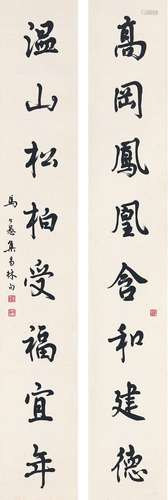 高岡鳳凰含和建德
溫山松柏受福宜年
馬公愚集易林句